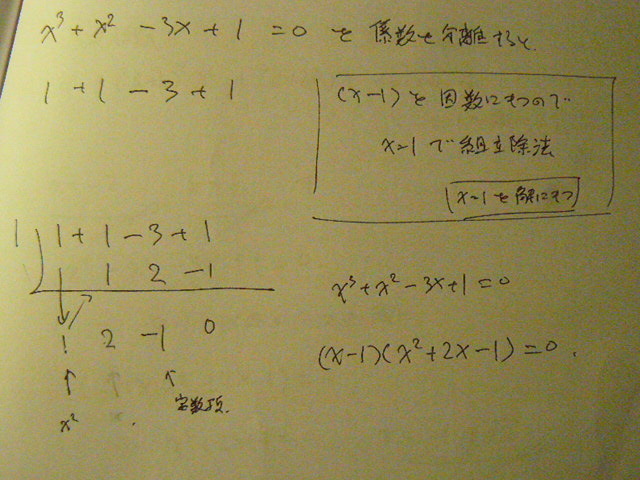 x³ + x² - 3x + 1 = 0 を 係数を分離すると
1 + 1 - 3 + 1
(x-1) を 因数にもつので
x=1 で 組立除法
x=1を解にもつ
1 ) 1 + 1 - 3 + 1
1 1 2 -1
1 2 -1 0
x²
定数項
x³ + x² - 3x + 1 = 0
(x-1)(x²+2x-1) = 0.